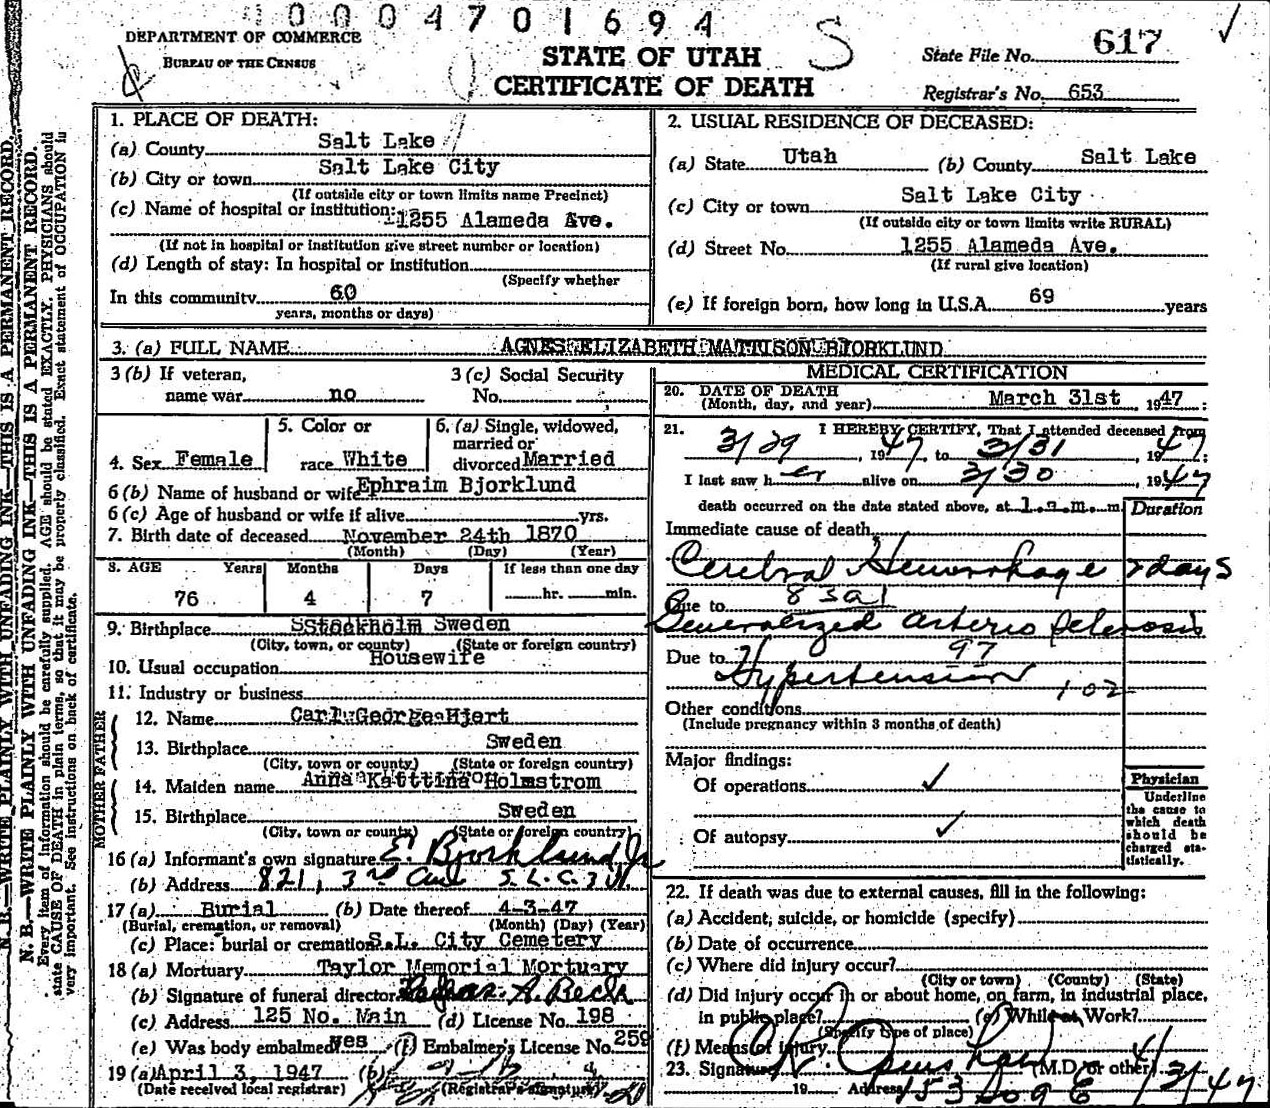 0004701694 S
DEPARTMENT OF COMMERCE
BUREAU OF THE CENSUS
STATE OF UTAH
CERTIFICATE OF DEATH
State File No. 617
Registrar's No. 653
N. B.—WRITE PLAINLY WITH UNFADING INK—THIS IS A PERMANENT RECORD.
N. B.—WRITE PLAINLY WITH UNFADING INK—THIS IS A PERMANENT RECORD.
Every item of information should be carefully supplied. AGE should be stated EXACTLY. PHYSICIANS should
state CAUSE OF DEATH in plain terms, so that it may be properly classified. Exact statement of OCCUPATION is
very important. See instructions on back of certificate.
1. PLACE OF DEATH:
(a) County Salt Lake
(b) City or town Salt Lake City
(If outside city or town limits name Precinct)
(c) Name of hospital or institution: 1255 Alameda Ave.
(If not in hospital or institution give street number or location)
(d) Length of stay: In hospital or institution
(Specify whether
In this community 60
years, months or days)
2. USUAL RESIDENCE OF DECEASED:
(a) State Utah (b) County Salt Lake
(c) City or town Salt Lake City
(If outside city or town limits write RURAL)
(d) Street No. 1255 Alameda Ave.
(If rural give location)
(e) If foreign born, how long in U.S.A. 69 years
3. (a) FULL NAME AGNES ELIZABETH MATTISON BJORKLUND
3 (b) If veteran, 3 (c) Social Security
name war no No.
4. Sex Female
5. Color or
race White
6. (a) Single, widowed,
married or
divorced Married
6 (b) Name of husband or wife Ephraim Bjorklund
6 (c) Age of husband or wife if alive yrs.
7. Birth date of deceased November 24th 1870
(Month) (Day) (Year)
8. AGE Years Months Days If less than one day
76 4 7 hr. min.
9. Birthplace SStockholm Sweden
(City, town, or county) (State or foreign country)
10. Usual occupation Housewife
11. Industry or business
FATHER
12. Name Carl George Hjert
13. Birthplace Sweden
(City, town or county) (State or foreign country)
MOTHER
14. Maiden name Anna Katttina Holmstrom
15. Birthplace Sweden
(City, town or county) (State or foreign country)
16 (a) Informant's own signature E Bjorklund Jr
(b) Address 821, 3rd Ave S. L. C. 3 Ut.
17 (a) Burial (b) Date thereof 4-3-47
(Burial, cremation, or removal) (Month) (Day) (Year)
(c) Place: burial or cremation S.L. City Cemetery
18 (a) Mortuary Taylor Memorial Mortuary
(b) Signature of funeral director A. Beck
(c) Address 125 No. Main (d) License No. 198
(e) Was body embalmed yes (f) Embalmer's License No. 259
19 (a) April 3, 1947 (b)
(Date received local registrar) (Registrar's signature)
MEDICAL CERTIFICATION
20. DATE OF DEATH
(Month, day, and year) March 31st, 1947
21. I HEREBY CERTIFY, That I attended deceased from
3/29, 1947, to 3/31, 1947;
I last saw her alive on 3/30, 1947
death occurred on the date stated above, at 1.a.m. m.
Duration
Immediate cause of death
Cerebral Hemorrhage 2 days
Due to 83a1
Generalized Arterio Sclerosis
97
Due to Hypertension 102
Other conditions
(Include pregnancy within 3 months of death)
Major findings:
Of operations ✓
Of autopsy ✓
Physician
Underline
the cause to
which death
should be
charged sta-
tistically.
22. If death was due to external causes, fill in the following:
(a) Accident, suicide, or homicide (specify)
(b) Date of occurrence
(c) Where did injury occur?
(City or town) (County) (State)
(d) Did injury occur in or about home, on farm, in industrial place,
in public place? (e) While at Work?
(Specify type of place)
(f) Means of injury
23. Signature (M.D. or other)
19 Address 153 So 9 E 4/3/47